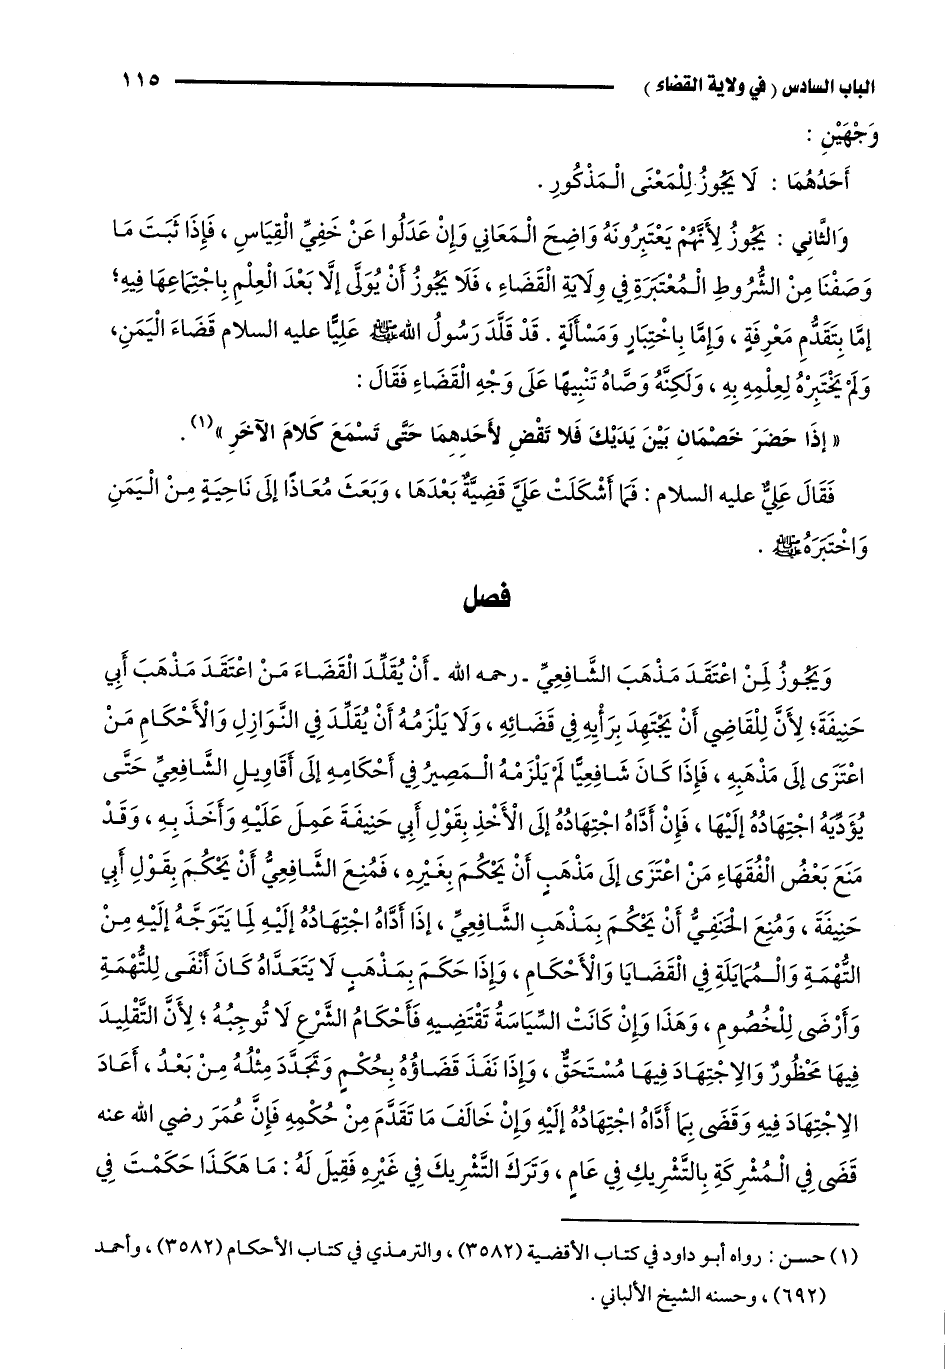 الباب السادس (في ولاية القضاء) ١١٥
وَجْهَيْنِ :
أَحَدُهُمَا : لَا يَجُوزُ لِلْمَعْنَى الْمَذْكُورِ .
وَالثَّانِي : يَجُوزُ لِأَنَّهُمْ يَعْتَبِرُونَهُ وَاضِحَ الْمَعَانِي وَإِنْ عَدَلُوا عَنْ خَفِيِّ الْقِيَاسِ ، فَإِذَا ثَبَتَ مَا
وَصَفْنَا مِنْ الشُّرُوطِ الْمُعْتَبَرَةِ فِي وِلَايَةِ الْقَضَاءِ ، فَلَا يَجُوزُ أَنْ يُوَلَّى إلَّا بَعْدَ الْعِلْمِ بِاجْتِمَاعِهَا فِيهِ؛
إمَّا بِتَقَدُّمِ مَعْرِفَةٍ ، وَإِمَّا بِاخْتِبَارٍ وَمَسْأَلَةٍ . قَدْ قَلَّدَ رَسُولُ اللهِ ﷺ عَلِيًّا عليه السلام قَضَاءَ الْيَمَنِ،
وَلَمْ يَخْتَبِرْهُ لِعِلْمِهِ بِهِ ، وَلَكِنَّهُ وَصَّاهُ تَنْبِيهًا عَلَى وَجْهِ الْقَضَاءِ فَقَالَ :
« إذَا حَضَرَ خَصْمَانِ بَيْنَ يَدَيْكَ فَلَا تَقْضِ لِأَحَدِهِمَا حَتَّى تَسْمَعَ كَلَامَ الْآخَرِ »(١) .
فَقَالَ عَلِيٌّ عليه السلام : فَمَا أَشْكَلَتْ عَلَيَّ قَضِيَّةٌ بَعْدَهَا ، وَبَعَثَ مُعَاذًا إلَى نَاحِيَةٍ مِنْ الْيَمَنِ
وَاخْتَبَرَهُ ﷺ .
فصل
وَيَجُوزُ لِمَنْ اعْتَقَدَ مَذْهَبَ الشَّافِعِيِّ ـ رحمه الله ـ أَنْ يُقَلِّدَ الْقَضَاءَ مَنْ اعْتَقَدَ مَذْهَبَ أَبِي
حَنِيفَةَ؛ لِأَنَّ لِلْقَاضِي أَنْ يَجْتَهِدَ بِرَأْيِهِ فِي قَضَائِهِ ، وَلَا يَلْزَمُهُ أَنْ يُقَلِّدَ فِي النَّوَازِلِ وَالْأَحْكَامِ مَنْ
اعْتَزَى إلَى مَذْهَبِهِ ، فَإِذَا كَانَ شَافِعِيًّا لَمْ يَلْزَمْهُ الْمَصِيرُ فِي أَحْكَامِهِ إلَى أَقَاوِيلِ الشَّافِعِيِّ حَتَّى
يُؤَدِّيَهُ اجْتِهَادُهُ إلَيْهَا ، فَإِنْ أَدَّاهُ اجْتِهَادُهُ إلَى الْأَخْذِ بِقَوْلِ أَبِي حَنِيفَةَ عَمِلَ عَلَيْهِ وَأَخَذَ بِهِ ، وَقَدْ
مَنَعَ بَعْضُ الْفُقَهَاءِ مَنْ اعْتَزَى إلَى مَذْهَبٍ أَنْ يَحْكُمَ بِغَيْرِهِ ، فَمُنِعَ الشَّافِعِيُّ أَنْ يَحْكُمَ بِقَوْلِ أَبِي
حَنِيفَةَ ، وَمُنِعَ الْحَنَفِيُّ أَنْ يَحْكُمَ بِمَذْهَبِ الشَّافِعِيِّ ، إذَا أَدَّاهُ اجْتِهَادُهُ إلَيْهِ لِمَا يَتَوَجَّهُ إلَيْهِ مِنْ
التُّهْمَةِ وَالْمُمَايَلَةِ فِي الْقَضَايَا وَالْأَحْكَامِ ، وَإِذَا حَكَمَ بِمَذْهَبٍ لَا يَتَعَدَّاهُ كَانَ أَنْفَى لِلتُّهْمَةِ
وَأَرْضَى لِلْخُصُومِ ، وَهَذَا وَإِنْ كَانَتْ السِّيَاسَةُ تَقْتَضِيهِ فَأَحْكَامُ الشَّرْعِ لَا تُوجِبُهُ ؛ لِأَنَّ التَّقْلِيدَ
فِيهَا مَحْظُورٌ وَالِاجْتِهَادَ فِيهَا مُسْتَحَقٌّ ، وَإِذَا نَفَذَ قَضَاؤُهُ بِحُكْمٍ وَتَجَدَّدَ مِثْلُهُ مِنْ بَعْدُ ، أَعَادَ
الِاجْتِهَادَ فِيهِ وَقَضَى بِمَا أَدَّاهُ اجْتِهَادُهُ إلَيْهِ وَإِنْ خَالَفَ مَا تَقَدَّمَ مِنْ حُكْمِهِ فَإِنَّ عُمَرَ رضي الله عنه
قَضَى فِي الْمُشْرِكَةِ بِالتَّشْرِيكِ فِي عَامٍ ، وَتَرَكَ التَّشْرِيكَ فِي غَيْرِهِ فَقِيلَ لَهُ : مَا هَكَذَا حَكَمْتَ فِي
(١) حسن : رواه أبو داود في كتاب الأقضية (٣٥٨٢) ، والترمذي في كتاب الأحكام (٣٥٨٢) ، وأحمد
(٦٩٢) ، وحسنه الشيخ الألباني .